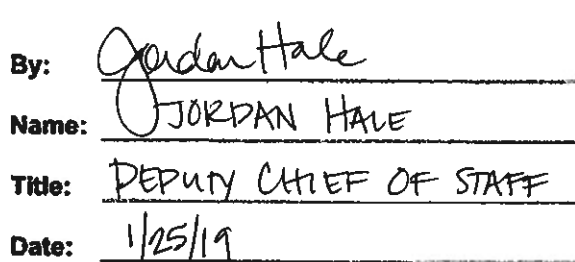 By: Jordan Hale
Name: JORDAN HALE
Title: DEPUTY CHIEF OF STAFF
Date: 1/25/19